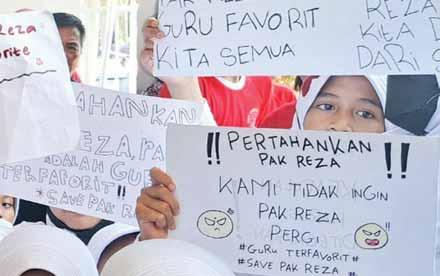 REZA
ORITE
GURU FAVORIT
KITA SEMUA
REZA
KITA
DARI S
TAHANKAN
REZA, PA
ADALAH GU
TERFAVORIT!!
#SAVE PAK REZA
!! PERTAHANKAN !!
PAK REZA
KAMI TIDAK INGIN
PAK REZA
PERGI
#GURU TERFAVORIT
#SAVE PAK REZA